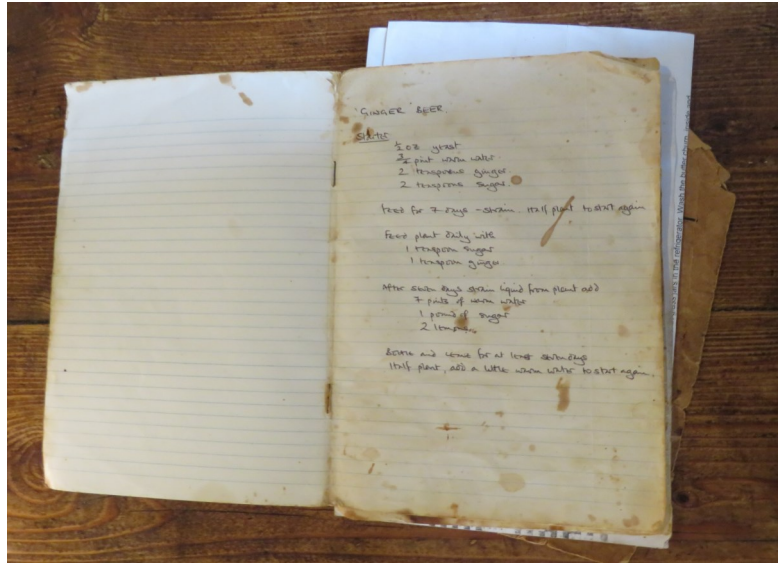 'GINGER' BEER
STARTS
½ oz yeast
¾ pint warm water
2 teaspoons ginger
2 teaspoons sugar
Feed for 7 days - strain. Half plant to start again
Feed plant daily with
1 teaspoon sugar
1 teaspoon ginger
After seven days strain liquid from plant add
7 pints of warm water
1 pound of sugar
2 lemons
Bottle and leave for at least seven days
Half plant, add a little warm water to start again.
in the refrigerator. Wash the butter